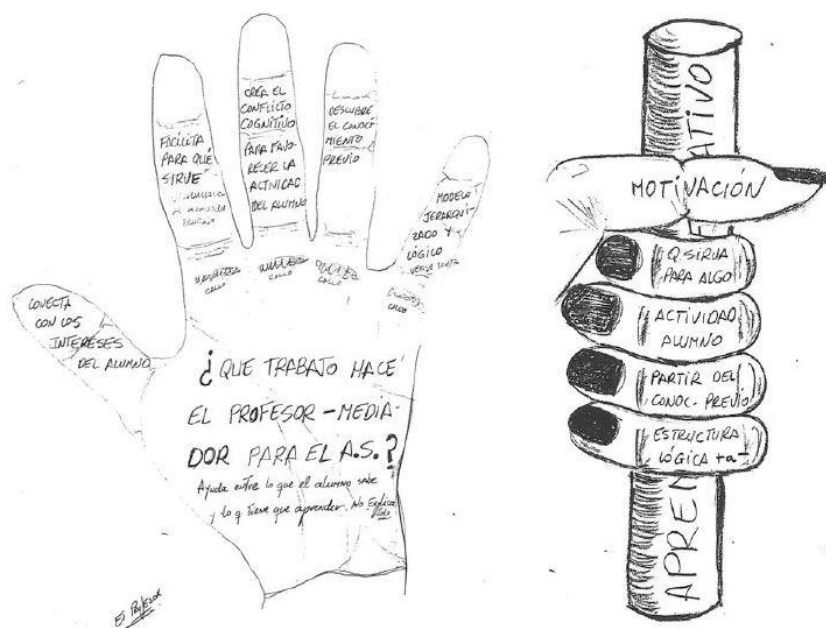 CONECTA
CON LOS
INTERESES
DEL ALUMNO
FACILITA
PARA QUÉ
SIRVE
CREA EL
CONFLICTO
COGNITIVO
PARA FAVO-
RECER LA
ACTIVIDAD
DEL ALUMNO
DESCUBRE
EL CONOCI
MIENTO
PREVIO
MODELO
JERARQUI
ZADO Y
LÓGICO
CALLO
CALLO
CALLO
¿QUE TRABAJO HACE
EL PROFESOR-MEDIA-
DOR PARA EL A.S.?
Ayuda entre lo que el alumno sabe
y lo q tiene que aprender. No Explica
Solo
El Profesor
ATIVO
MOTIVACIÓN
Q. SIRVA
PARA ALGO
ACTIVIDAD
ALUMNO
PARTIR DEL
CONOC. PREVIO
ESTRUCTURA
LÓGICA +a-
APREN